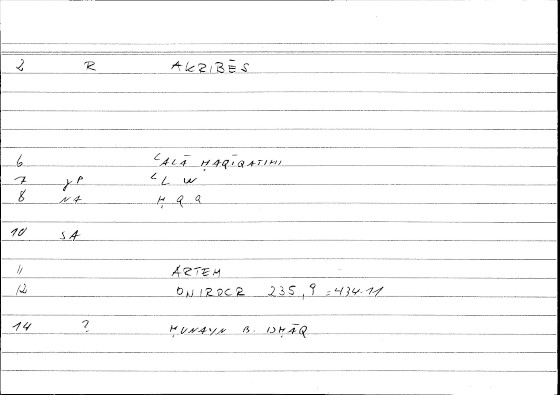 2 R AKRIBĒS
6 ʿALĀ ḤAQĪQATIHI
7 yP ʿL W
8 NA Ḥ Q Q
10 SA
11 ARTEM
12 ONIROCR 235,9 = 434.11
14 ? ḤUNAYN B. ISḤĀQ